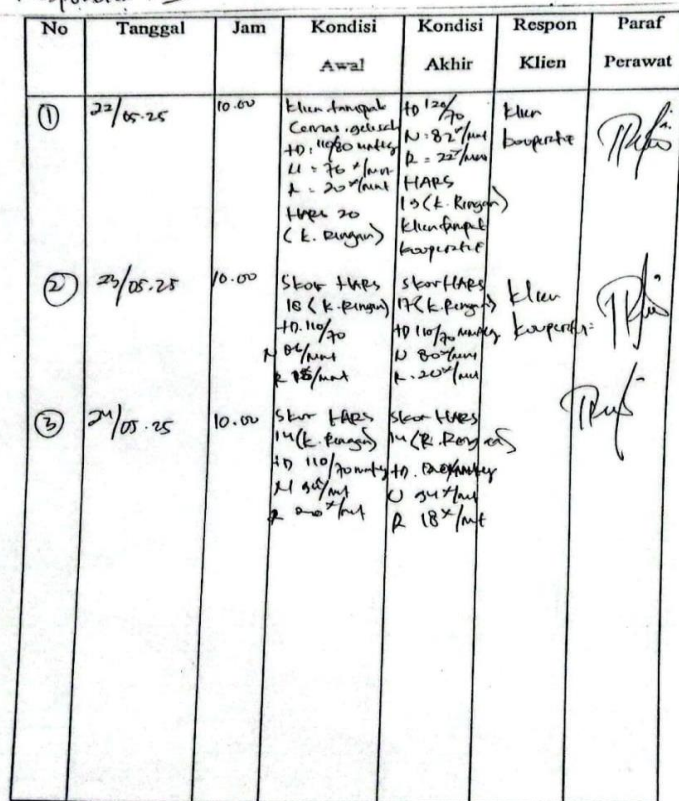 No Tanggal Jam Kondisi Awal Kondisi Akhir Respon Klien Paraf Perawat
① 22/05.25 10.00
Klien tampak
Cemas, gelisah
TD: 110/80 mmHg
N = 76 x/mnt
R = 20 x/mnt
HARS 20
(K. Ringan)
TD 120/70
N: 82 x/mnt
R = 22 x/mnt
HARS
19 (K. Ringan)
klien tampak
kooperatif
klien
kooperatif
② 23/05.25 10.00
Skor HARS
18 (K. Ringan)
TD. 110/70
N /mnt
R 18/mnt
Skor HARS
17 (K. Ringan)
TD 110/70 mmHg
N 80 x/mnt
R. 20 x/mnt
klien
kooperatif
③ 24/05.25 10.00
Skor HARS
14 (K. Ringan)
TD 110/70 mmHg
N /mnt
R 20 x/mnt
Skor HARS
14 (K. Ringan)
TD. mmHg
N 94 x/mnt
R 18 x/mnt